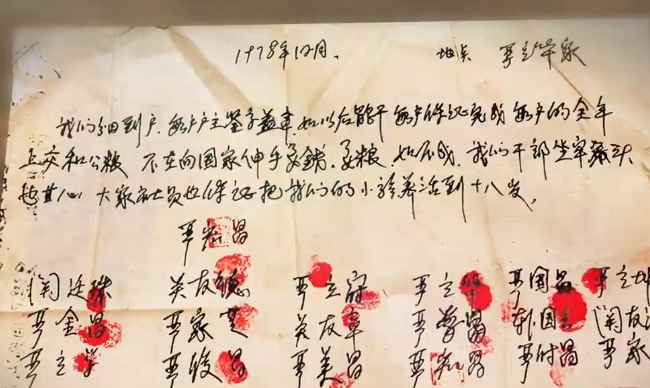 1978年12月. 地点 严立华家
我们分田到户，每户户主签字盖章，如以后能干，每户保证完成每户的全年
上交和公粮 不在向国家伸手要钱，要粮，如不成，我们干部坐牢杀头
也甘心 大家社员也保证把我们的小孩养活到十八岁，
严宏昌
关廷珠 关友德 严立符 严立华 严国昌 严立坤
严金昌 严家芝 关友章 严学昌 韩国云 关友
严立学 严俊昌 严美昌 严宏昌 严付昌 严家